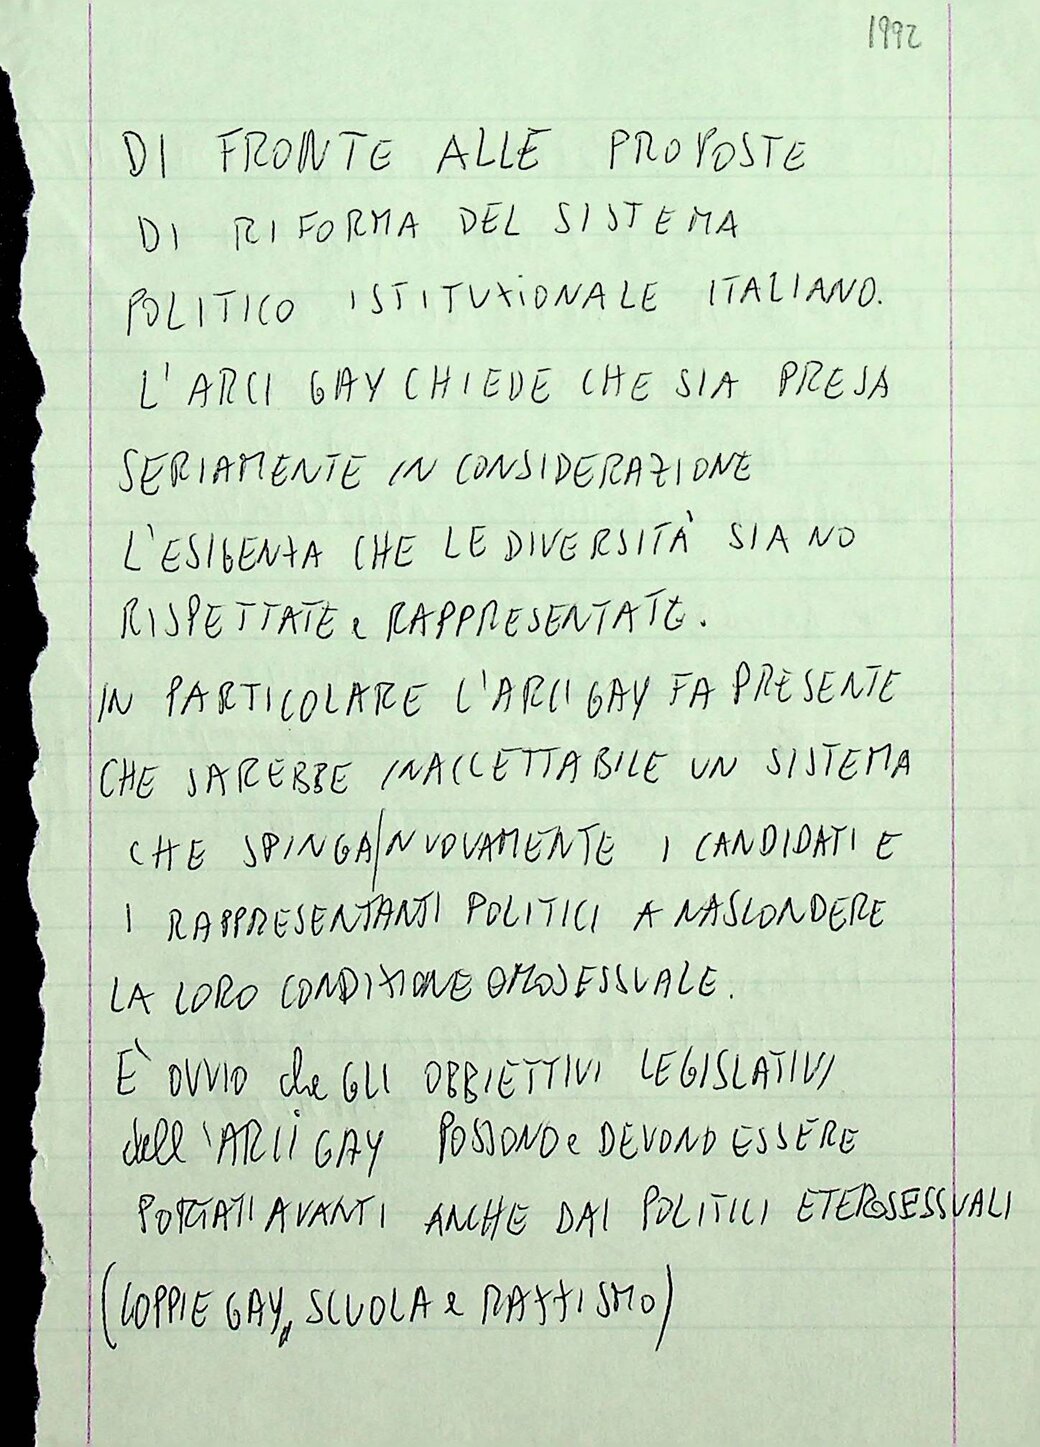 1992
DI FRONTE ALLE PROPOSTE
DI RIFORMA DEL SISTEMA
POLITICO ISTITUZiONALE ITALIANO.
L'ARCI GAY CHIEDE CHE SIA PRESA
SERIAMENTE IN CONSIDERAZIONE
L'ESIGENZA CHE LE DIVERSITÀ SIANO
RISPETTATE e RAPPRESENTATE.
IN PARTICOLARE L'ARCI GAY FA PRESENTE
CHE SAREBBE INACCETTABILE UN SISTEMA
CHE SPINGA/NUOVAMENTE I CANDIDATI E
I RAPPRESENTANTI POLITICI A NASCONDERE
LA LORO CONDIZIONE OMOSESSUALE.
È OVVIO che GLI OBBIETTIVI LEGISLATIVI
dell'ARCi GAY POSSONO e DEVONO ESSERE
PORTATI AVANTI ANCHE DAI POLITICI ETEROSESSUALI
(COPPIE GAY, SCUOLA e RAZZISMO)